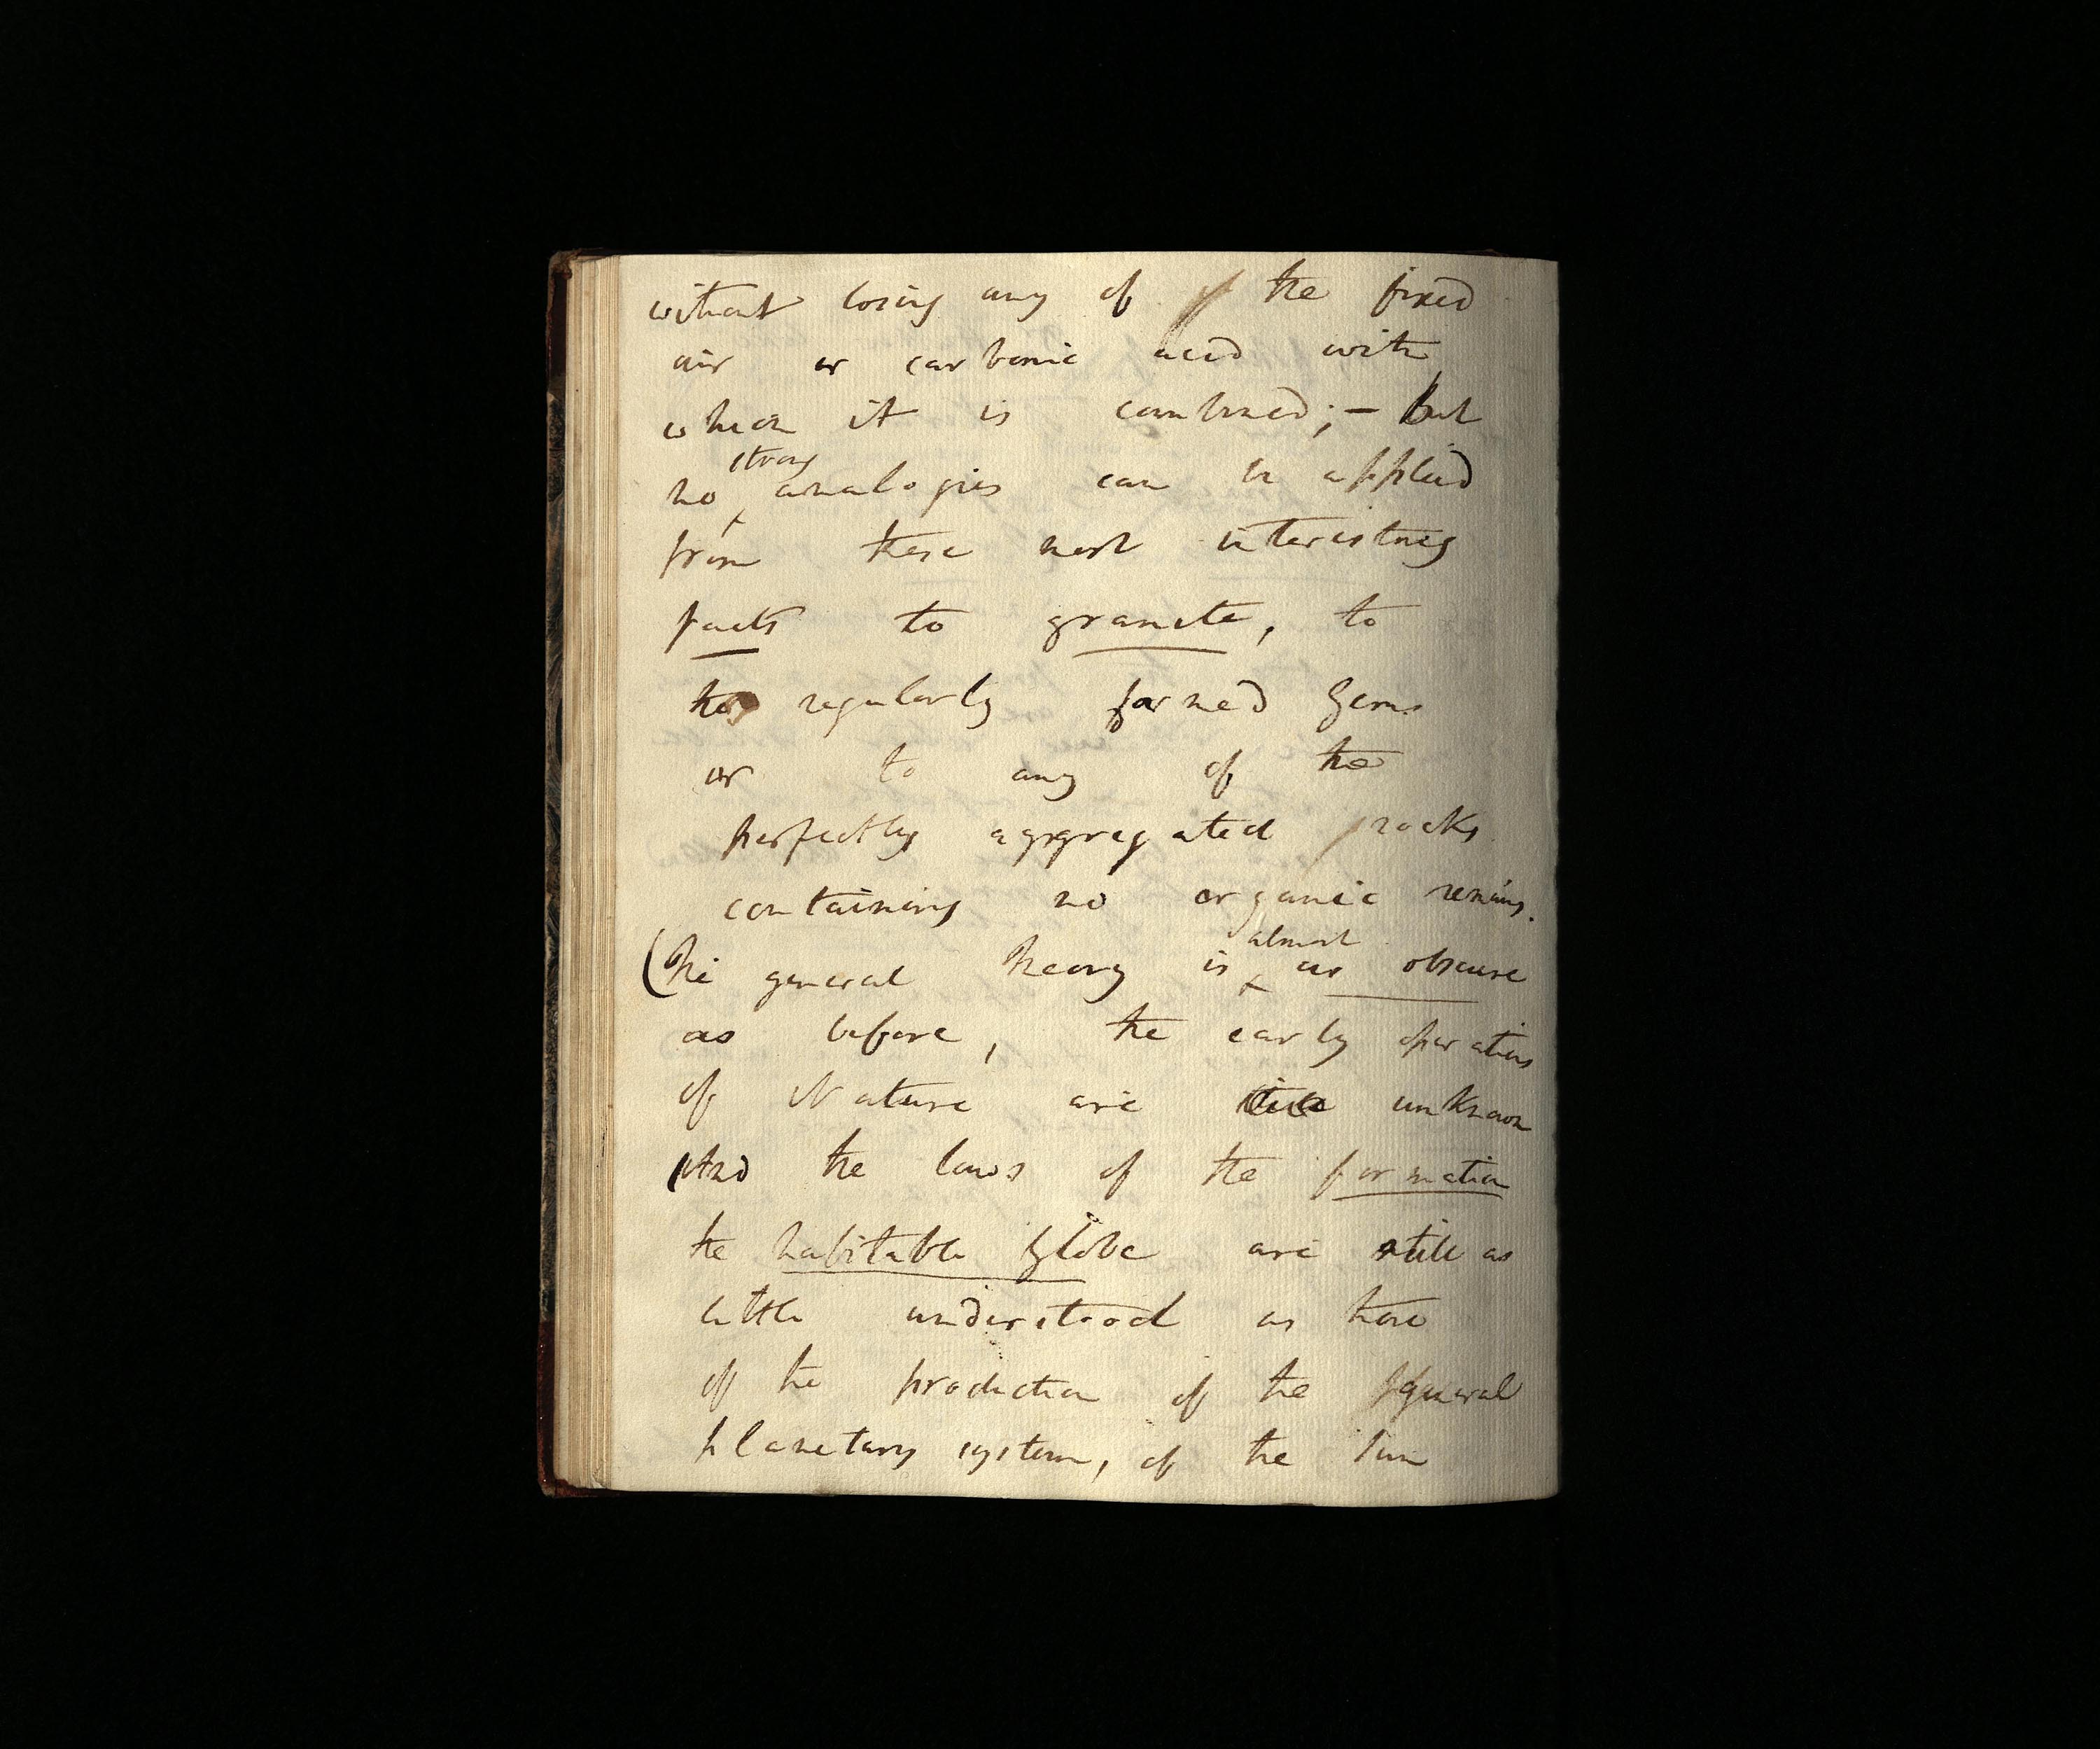 without losing any of the fixed
air or carbonic acid with
which it is combined; – but
strong
no analogies can be applied
from these most interesting
facts to granite, to
the regularly formed Gems
or to any of the
perfectly aggregated rocks
containing no organic remains.
almost
(the general theory is as obscure
as before, the early operations
of Nature are unknown
And the laws of the formation
the habitable Globe are still as
little understood as those
of the production of the general
planetary system, of the Sun